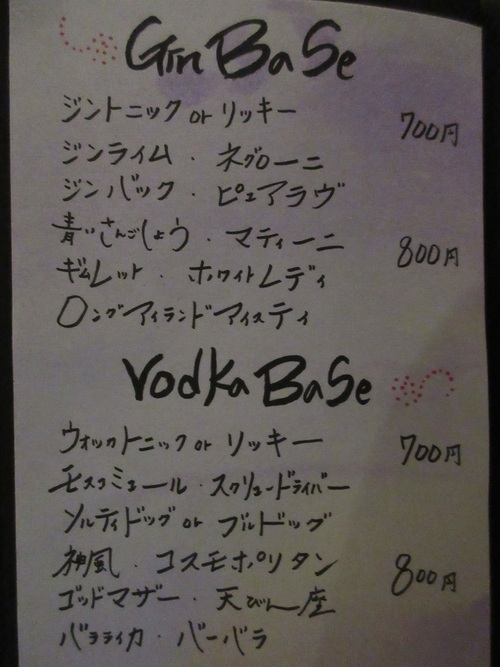 Gin BaSe
ジントニック or リッキー
700円
ジンライム ・ ネグローニ
ジンバック ・ ピュアラヴ
青いさんごしょう ・ マティーニ
800円
ギムレット ・ ホワイトレディ
ロングアイランドアイスティ
Vodka BaSe
ウォッカトニック or リッキー
700円
モスコミュール ・ スクリュードライバー
ソルティドッグ or ブルドッグ
神風 ・ コスモポリタン
800円
ゴッドマザー ・ 天びん座
バラライカ ・ バーバラ